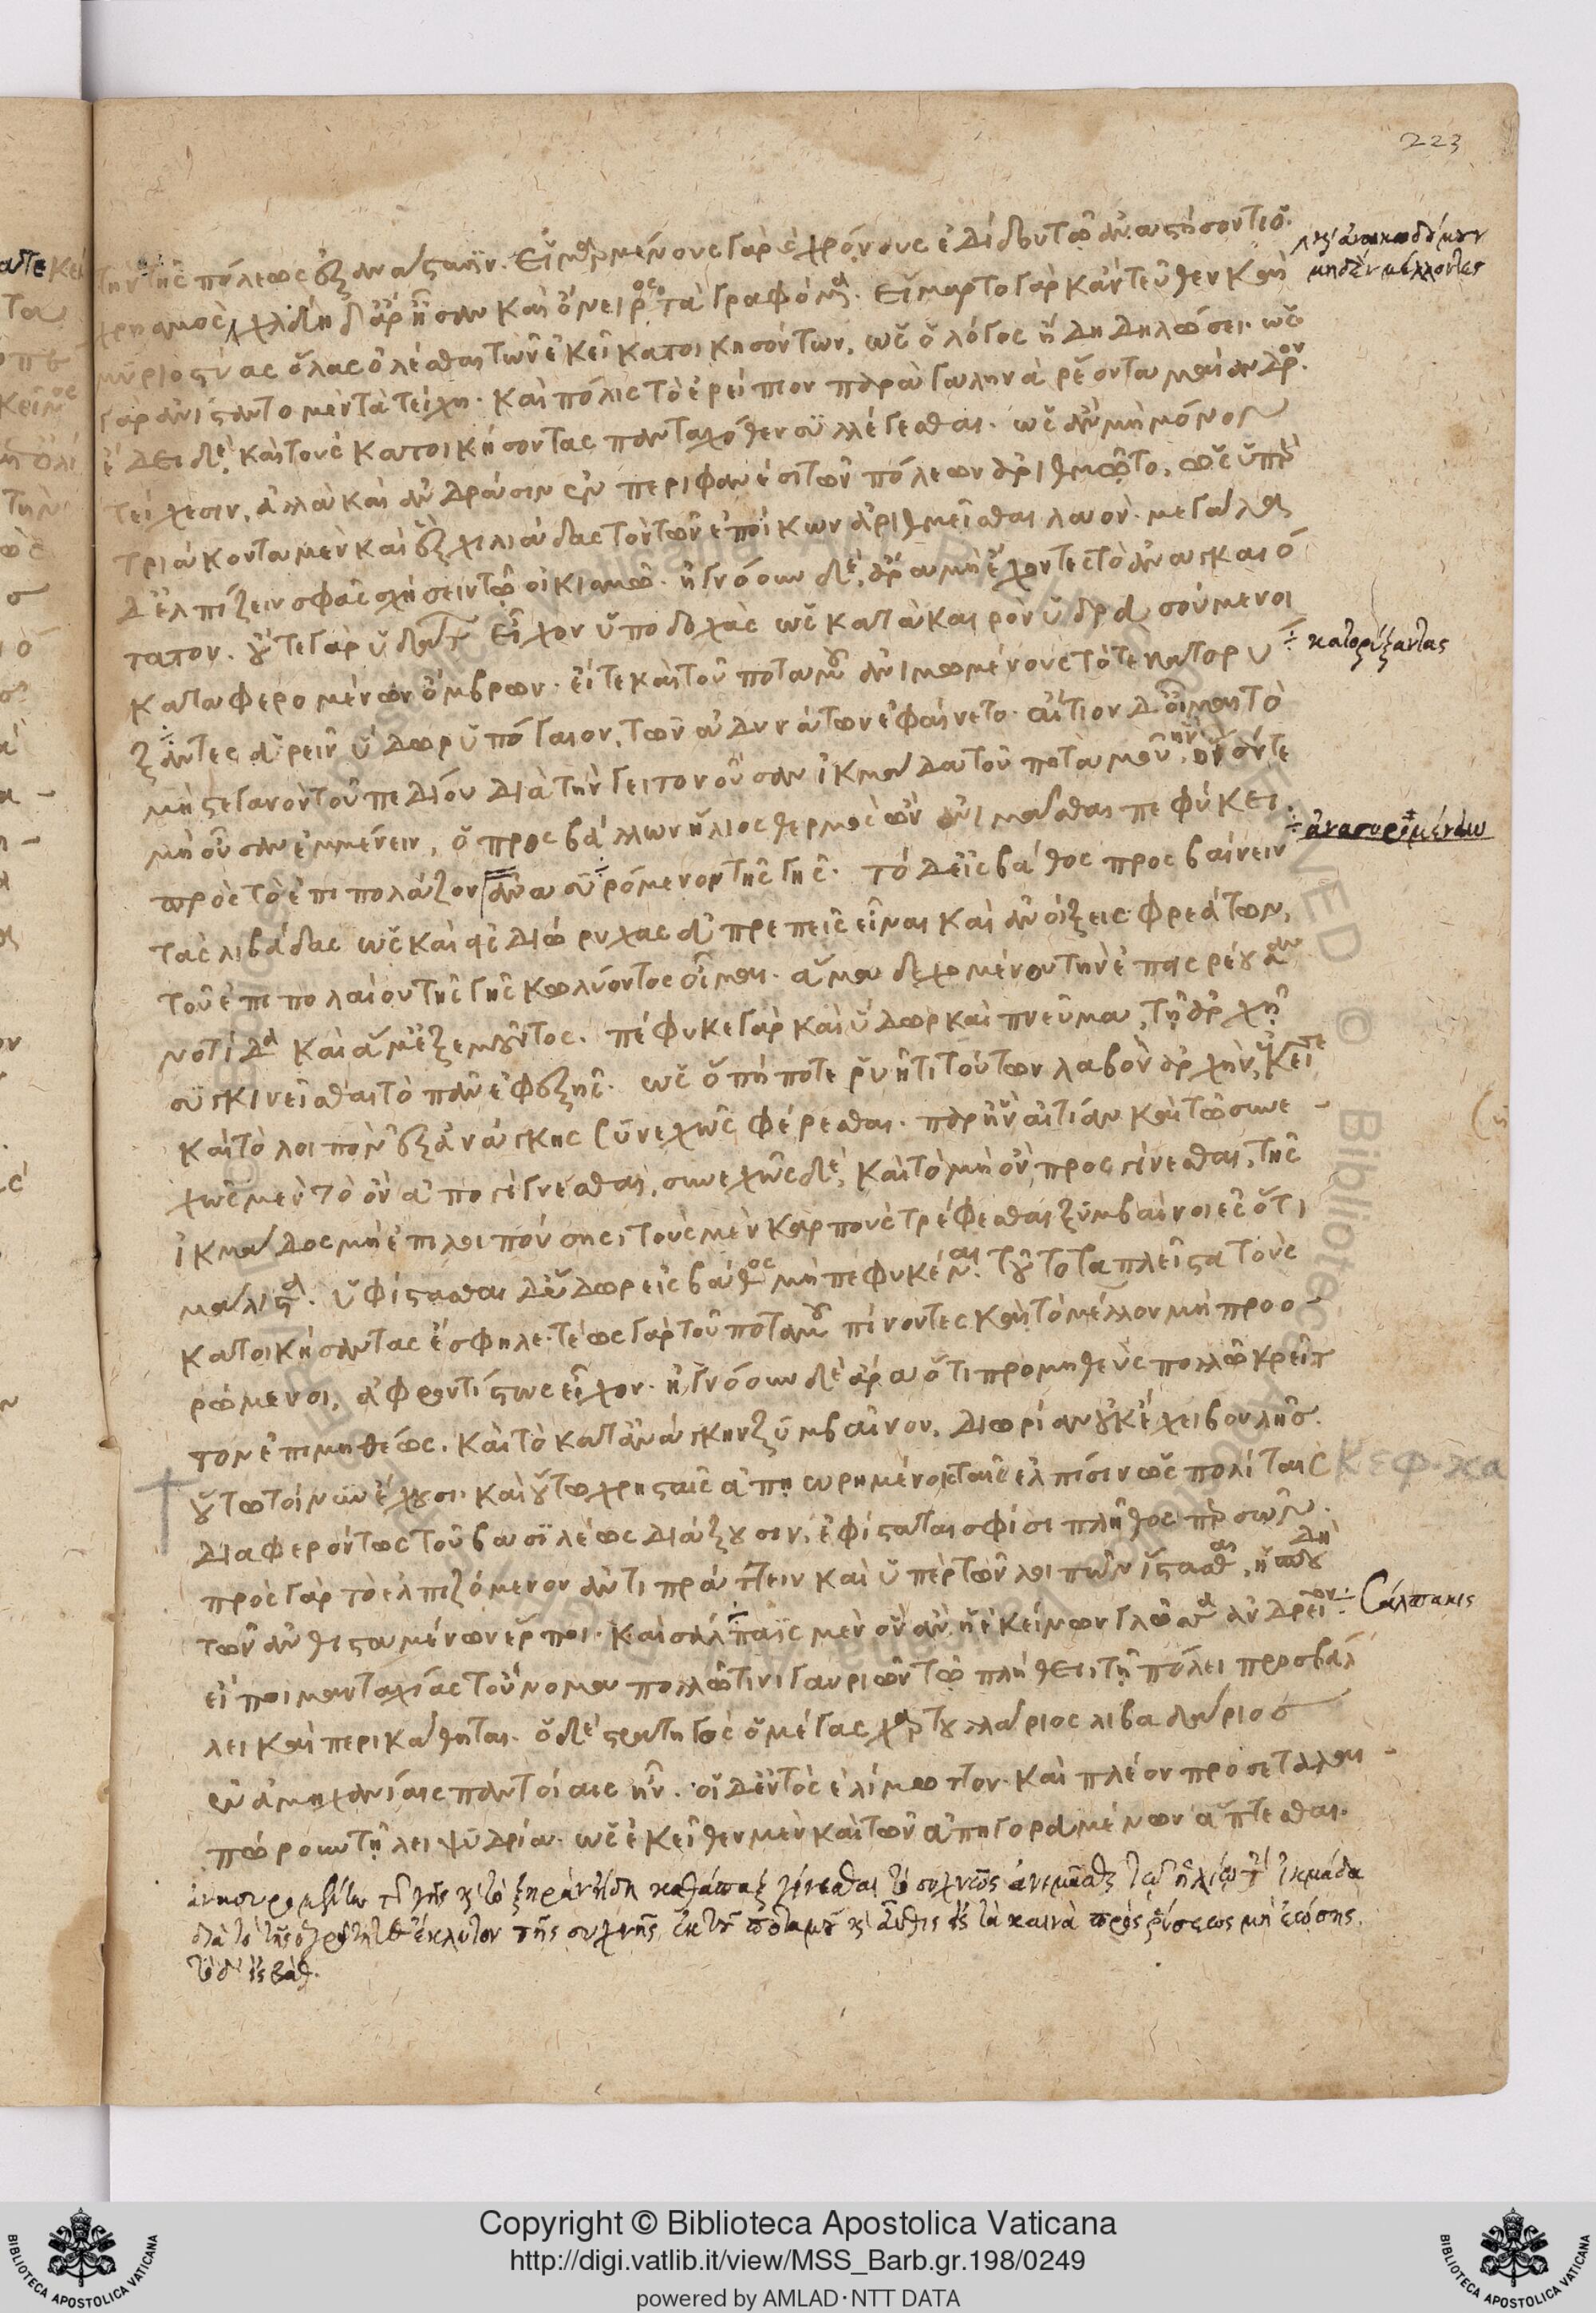 223
τὴν τῆς πόλεως ἐξανάστασιν. Εἱμαρμένους γὰρ ὁ χρόνους ἐδίδου τῷ ἀναστήσοντι ὁ
χρησμὸς, χλεύη δ' ἄρ' ἦσαν καὶ ὄνειρος τὰ γραφόμενα. Εἵμαρτο γὰρ κἀντεῦθεν καὶ
μυριοστύας ὅλας ὀλέσθαι τῶν ἐκεῖ κατοικησόντων, ὡς ὁ λόγος ἤδη δηλώσει. ὡς
γὰρ ἀνίσταντο μὲν τὰ τείχη. καὶ πόλις τὸ ἐρείπιον παρὰ γαληνὰ ῥέοντα μαίανδρον.
ἔδει δὲ, καὶ τοὺς κατοικήσοντας πανταχόθεν συλλέγεσθαι. ὡς ἂν μὴ μόνον
τείχεσιν, ἀλλὰ καὶ ἀνδράσιν ἐν περιφανέσι τῶν πόλεων ἀριθμῷτο, ὡς ὑπὲρ
τριάκοντα μὲν καὶ ἓξ χιλιάδας τὸν τῶν ἐποίκων ἀριθμεῖσθαι λαόν. μεγάλα
δ' ἐλπίζειν σφᾶς σχήσειν τῷ οἰκισμῷ. ἠγνόουν δὲ, ἄρα μὴ ἔχοντες τὸ ἀναγκαιό
τατον. οὔτε γὰρ ὕδατος εἶχον ὑποδοχὰς ὡς κατὰ καιρὸν ὑδρευσούμενοι
καταφερομένων ὄμβρων. εἴτε καὶ τοῦ ποταμοῦ ἀνιμωμένους τό τε κατορύ
ξαντες εὑρεῖν ὕδωρ ὑπόγαιον, τῶν ἀδυνάτων ἐφαίνετο. αἴτιον δ' οἶμαι τὸ
μὴ στεγανὸν τοῦ πεδίου διὰ τὴν γειτονοῦσαν ἰκμάδα τοῦ ποταμοῦ, ἣν οὔτε
μὴ οὖσαν ἐμμένειν, ὁ προσβάλλων ἥλιος θερμὸς ὢν ἀνιμᾶσθαι πέφυκει.
πρὸς τὸ ἐπιπολάζον ἀνασυρόμενον τῆς γῆς. τό δ' εἰς βάθος προσβαίνειν
τὰς λιβάδας ὡς καὶ ἐς διώρυχας εὐπρεπεῖς εἶναι καὶ ἀνοίξεις φρεάτων,
τοῦ ἐπιπολαίου τῆς γῆς κωλύοντος οἶμαι. ἅμα δεχομένου τὴν ἐπιρρέουσαν
νοτίδα καὶ ἅμ' ἐξεμοῦντος. πέφυκε γὰρ καὶ ὕδωρ καὶ πνεῦμα, τῇ ἀρχῇ
συγκινεῖσθαι τὸ πᾶν ἐφεξῆς. ὡς ὅπη ποτε ῥυῇ τι τούτων λαβὸν ἀρχὴν, κεῖσε
καὶ τὸ λοιπὸν ἐξ ἀνάγκης συνεχῶς φέρεσθαι. παρ' ἣν αἰτίαν καὶ τῷ συνε
χῶς μὲν τὸ ὂν ἀπογίγνεσθαι, συνεχῶς δὲ, καὶ τὸ μὴ ὂν, προσγίνεσθαι, τῆς
ἰκμάδος μὴ ἐπιλειπούσης, τοὺς μὲν καρποὺς τρέφεσθαι ξυμβαίνοι ἐς ὅτι
μάλιστα. ὑφίστασθαι δ' ὕδωρ εἰς βάθος μὴ πεφυκέναι. τοῦτο τὰ πλεῖστα τοὺς
κατοικήσαντας ἔσφηλε. τέως γὰρ τοῦ ποταμοῦ πίνοντες καὶ τὸ μέλλον μὴ προο
ρώμενοι, ἀφροντίστως εἶχον. ἠγνόουν δὲ ἄρα ὅτι προμηθεὺς πολλῷ κρεῖτ
τον ἐπιμηθέως. καὶ τὸ κατ' ἀνάγκην ξυμβαῖνον, διωρίαν οὐκ ἔχει βουλῆς.
οὕτω τοίνυν ἔχουσι. καὶ οὕτω χρησταῖς ἀπῃωρημένοις ταῖς ἐλπίσιν ὡς πολίταις
διαφερόντως τοῦ βασιλέως διάξουσιν, ἐφίσταται σφίσι πλῆθος περσῶν.
πρὸς γὰρ τὸ ἐλπιζόμενον ἀντιπράττειν καὶ ὑπὲρ τῶν λοιπῶν ἵστασθαι, ἤπου δὴ
τῶν ἀνθισταμένων ἕρποι. καὶ σάλπακις μὲν οὖν ἀν ἡ ἐκείνων γλῶσσα ἀνδρεῖον
εἴποι μανταχίας τοὔνομα πολλῷ τινι γαυριῶν τῷ πλήθει, τῇ πόλει προσβάλ
λει καὶ περικάθηται. ὁ δὲ στρατηγὸς ὁ μέγας χαρτουλάριος λιβαδάριος
ἐν ἀμηχανίαις παντοίαις ἦν. οἱ δ' ἐντὸς ἐλίμωττον. καὶ πλέον προσεταλαι
πώρουν τῇ λειψυδρίᾳ. ὡς ἐκεῖθεν μὲν καὶ τῶν ἀπηγορευμένων ἅπτεσθαι.
μηδὲν μέλλοντας
κατορύξαντας
ἀνασυρομένου
Κεφ. κα
Σάλπακις
ἀνασυρομένου τῆς γῆς καὶ τὸ ξηρὰν ἤδη καθάπαξ γίνεσθαι τὸ συχνῶς ἀνιμᾶσθαι τῷ ἡλίῳ τὴν ἰκμάδα
διὰ τὸ τῆς ὑγρότητος ἔκλυτον τῆς συχνῆς ἐκ τοῦ ποταμοῦ καὶ αὖθις ἐς τὰ καινὰ προσρύσεως μὴ ἐώσης.
τὸ δ' εἰς βάθ.
Copyright © Biblioteca Apostolica Vaticana
http://digi.vatlib.it/view/MSS_Barb.gr.198/0249
powered by AMLAD·NTT DATA
BIBLIOTECA APOSTOLICA VATICANA
BIBLIOTECA APOSTOLICA VATICANA